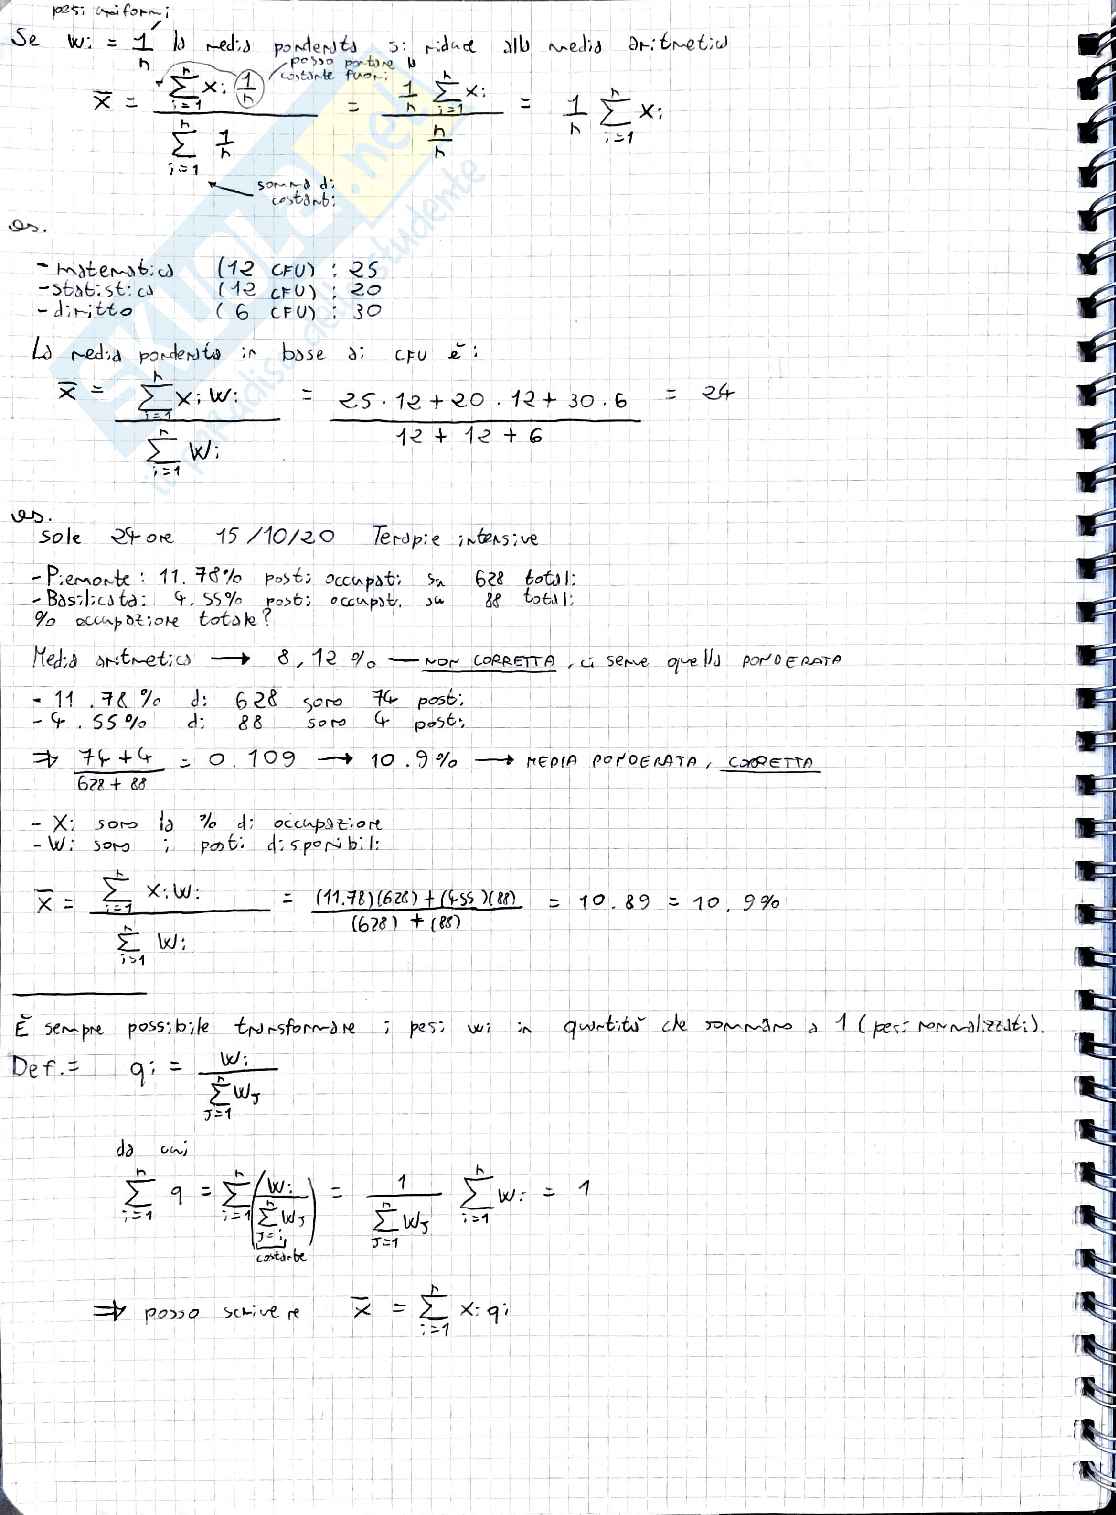 pesi uniformi
Se Wi = 1/n la media ponderata si riduce alla media aritmetica
posso portare la
costante fuori
x̄ = (∑_{i=1}^{n} xi (1/n)) / (∑_{i=1}^{n} 1/n) = ((1/n) ∑_{i=1}^{n} xi) / (n/n) = (1/n) ∑_{i=1}^{n} xi
somma di
costanti
es.
- matematica (12 CFU) : 25
- statistica (12 CFU) : 20
- diritto (6 CFU) : 30
La media ponderata in base ai CFU è:
x̄ = (∑_{i=1}^{n} xi Wi) / (∑_{i=1}^{n} Wi) = (25 · 12 + 20 · 12 + 30 · 6) / (12 + 12 + 6) = 24
es.
sole 24 ore 15/10/20 Terapie intensive
- Piemonte : 11.78% posti occupati su 628 totali
- Basilicata: 4.55% posti occupati su 88 totali
% occupazione totale?
Media aritmetica → 8,12 % — NON CORRETTA, ci serve quella PONDERATA
- 11.78% di 628 sono 74 posti
- 4.55% di 88 sono 4 posti
⇒ (74+4) / (628 + 88) = 0.109 → 10.9% → MEDIA PONDERATA, CORRETTA
- Xi sono la % di occupazione
- Wi sono i posti disponibili
x̄ = (∑_{i=1}^{n} xi Wi) / (∑_{i=1}^{n} Wi) = ((11.78)(628) + (4.55)(88)) / ((628) + (88)) = 10.89 = 10.9%
È sempre possibile transformare i pesi wi in quantità che sommano a 1 (pesi normalizzati).
Def.= qi = Wi / (∑_{J=1}^{n} WJ)
da cui
∑_{i=1}^{n} q = ∑_{i=1}^{n} (Wi / ∑_{J=i}^{n} WJ) = (1 / ∑_{J=1}^{n} WJ) ∑_{i=1}^{n} Wi = 1
costante
⇒ posso scrivere x̄ = ∑_{i=1}^{n} xi qi
SKUOLA.net
il paradiso dello studente